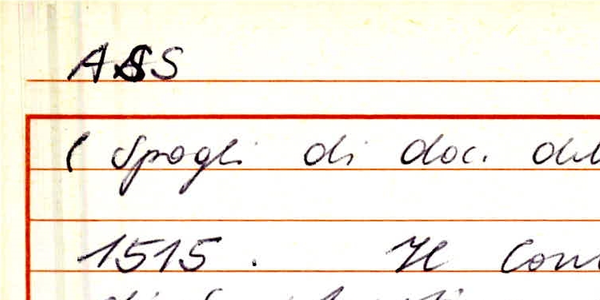 ASS
( Spogli di doc. del
1515. Il Con